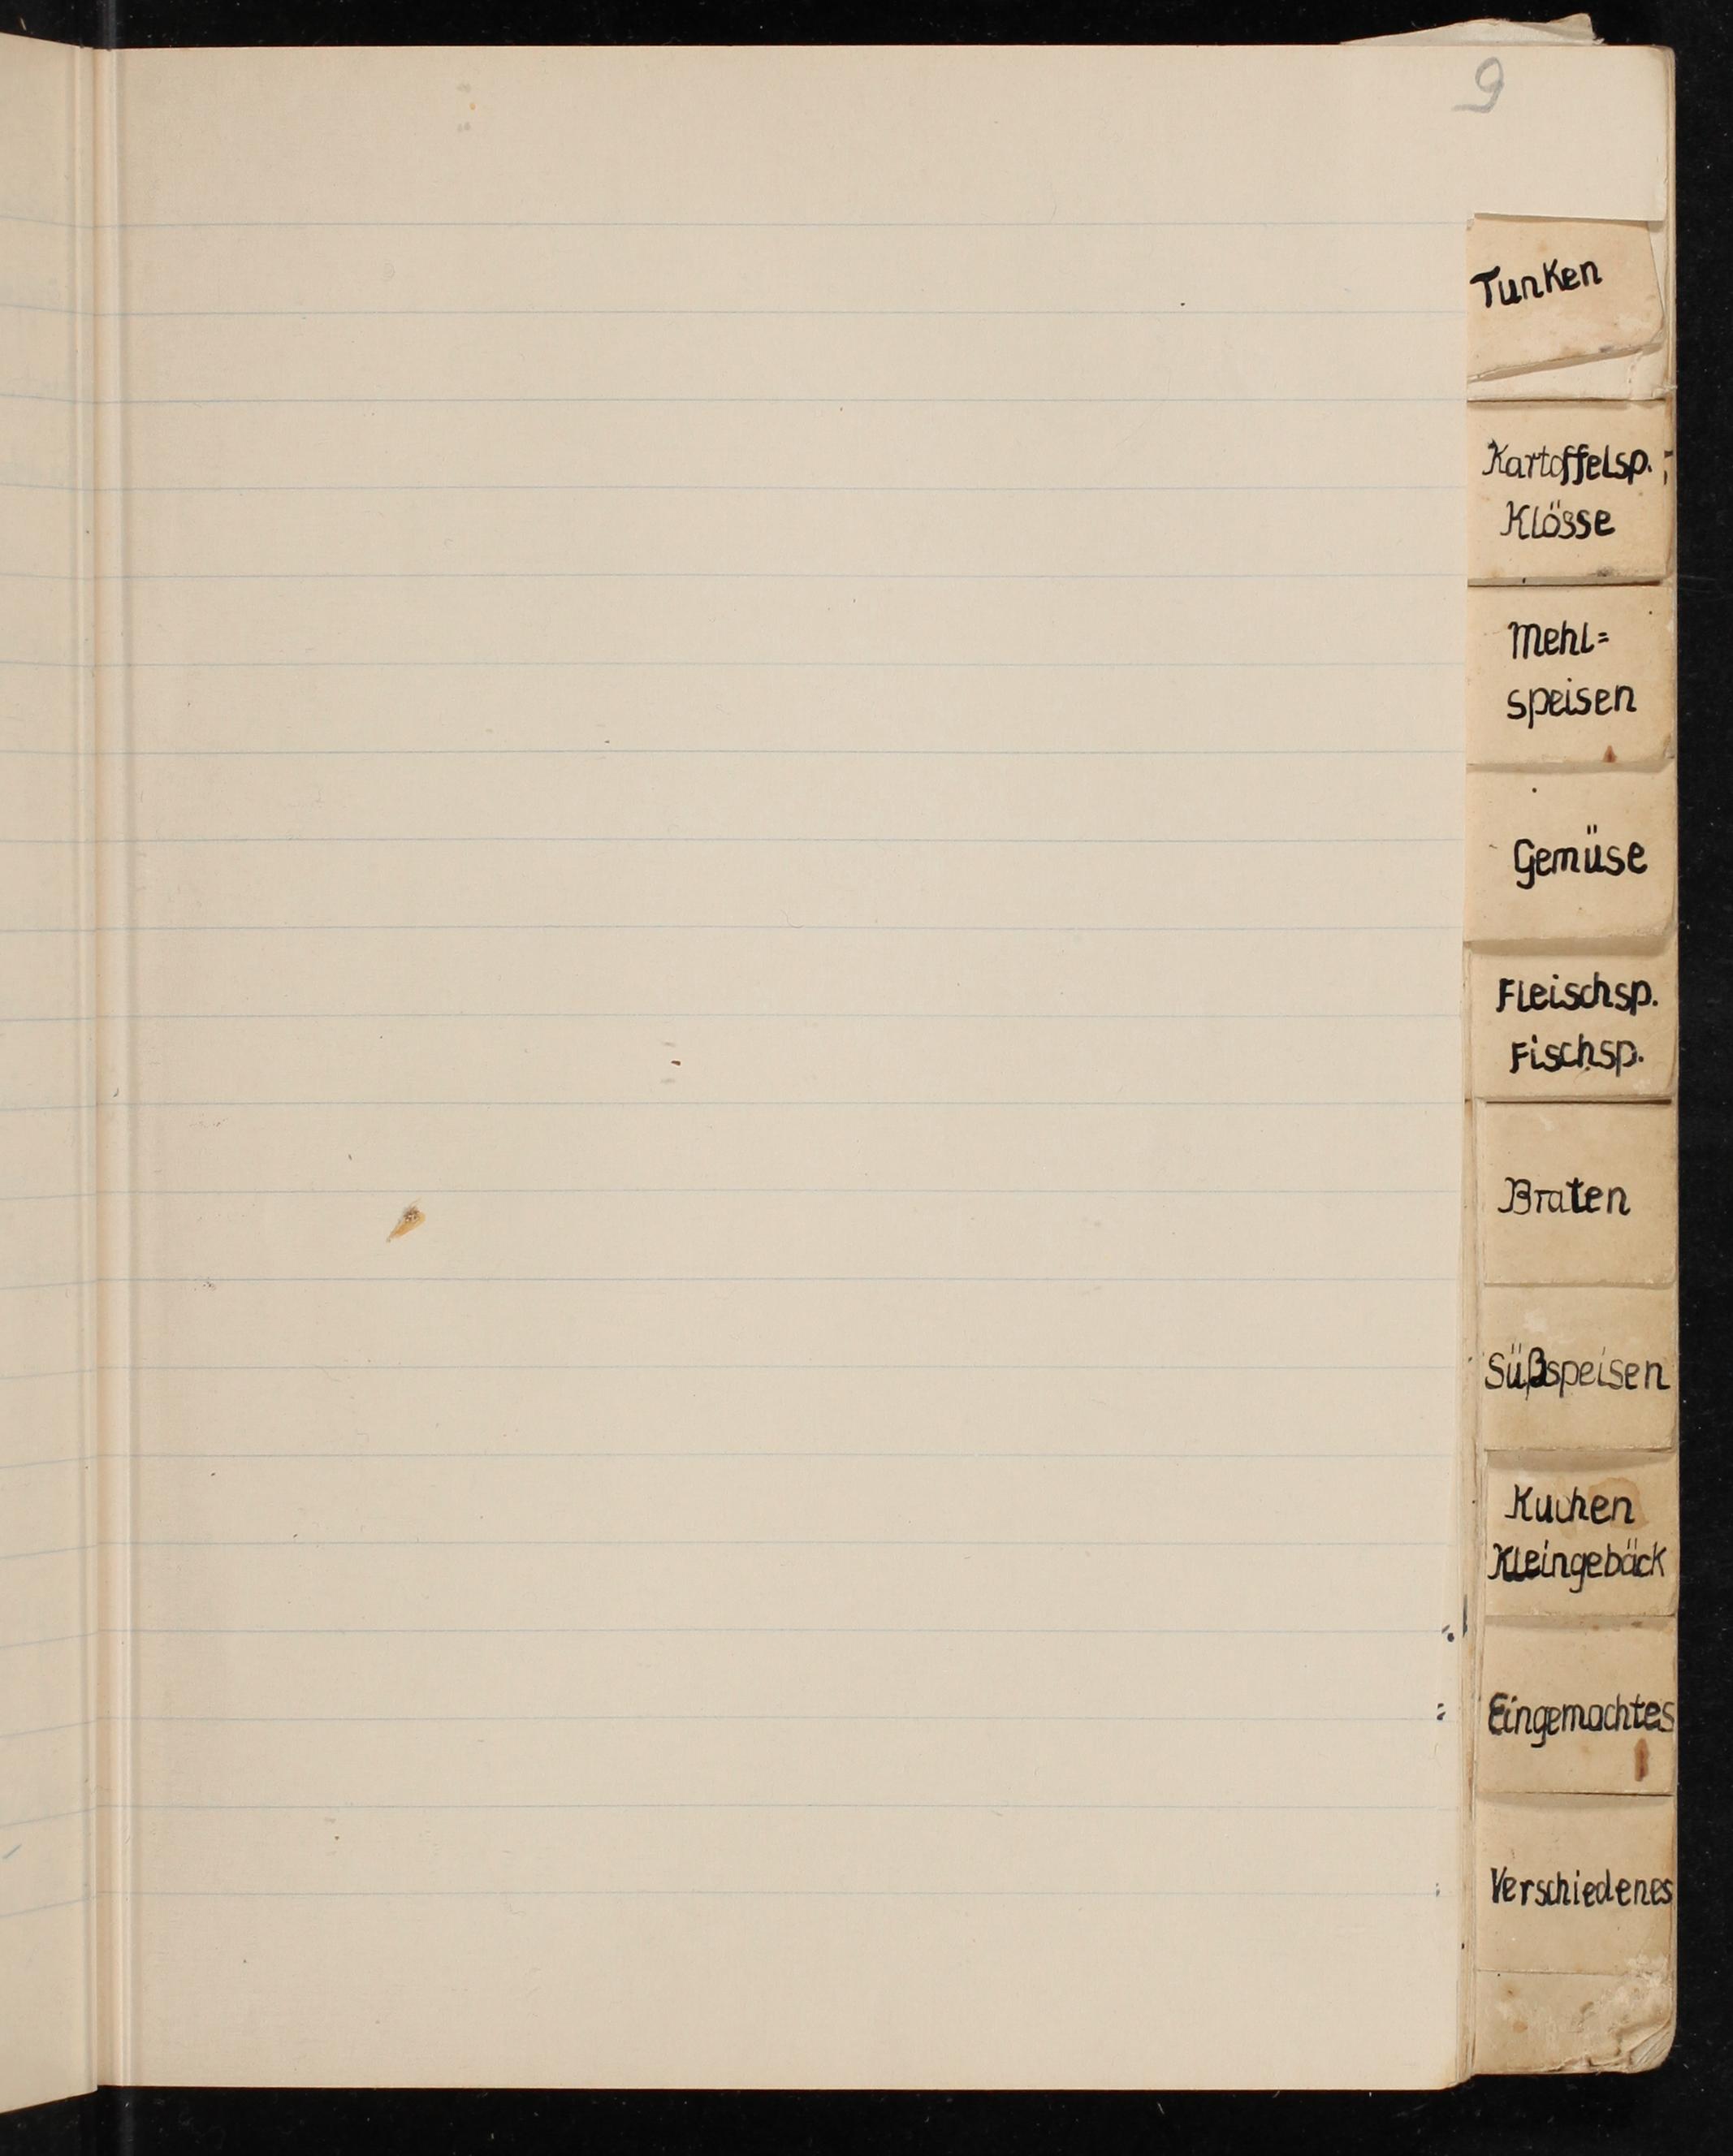 9
Tunken
Kartoffelsp.
Klösse
Mehl=
speisen
Gemüse
Fleischsp.
Fischsp.
Braten
Süßspeisen
Kuchen
Kleingebäck
Eingemachtes
Verschiedenes